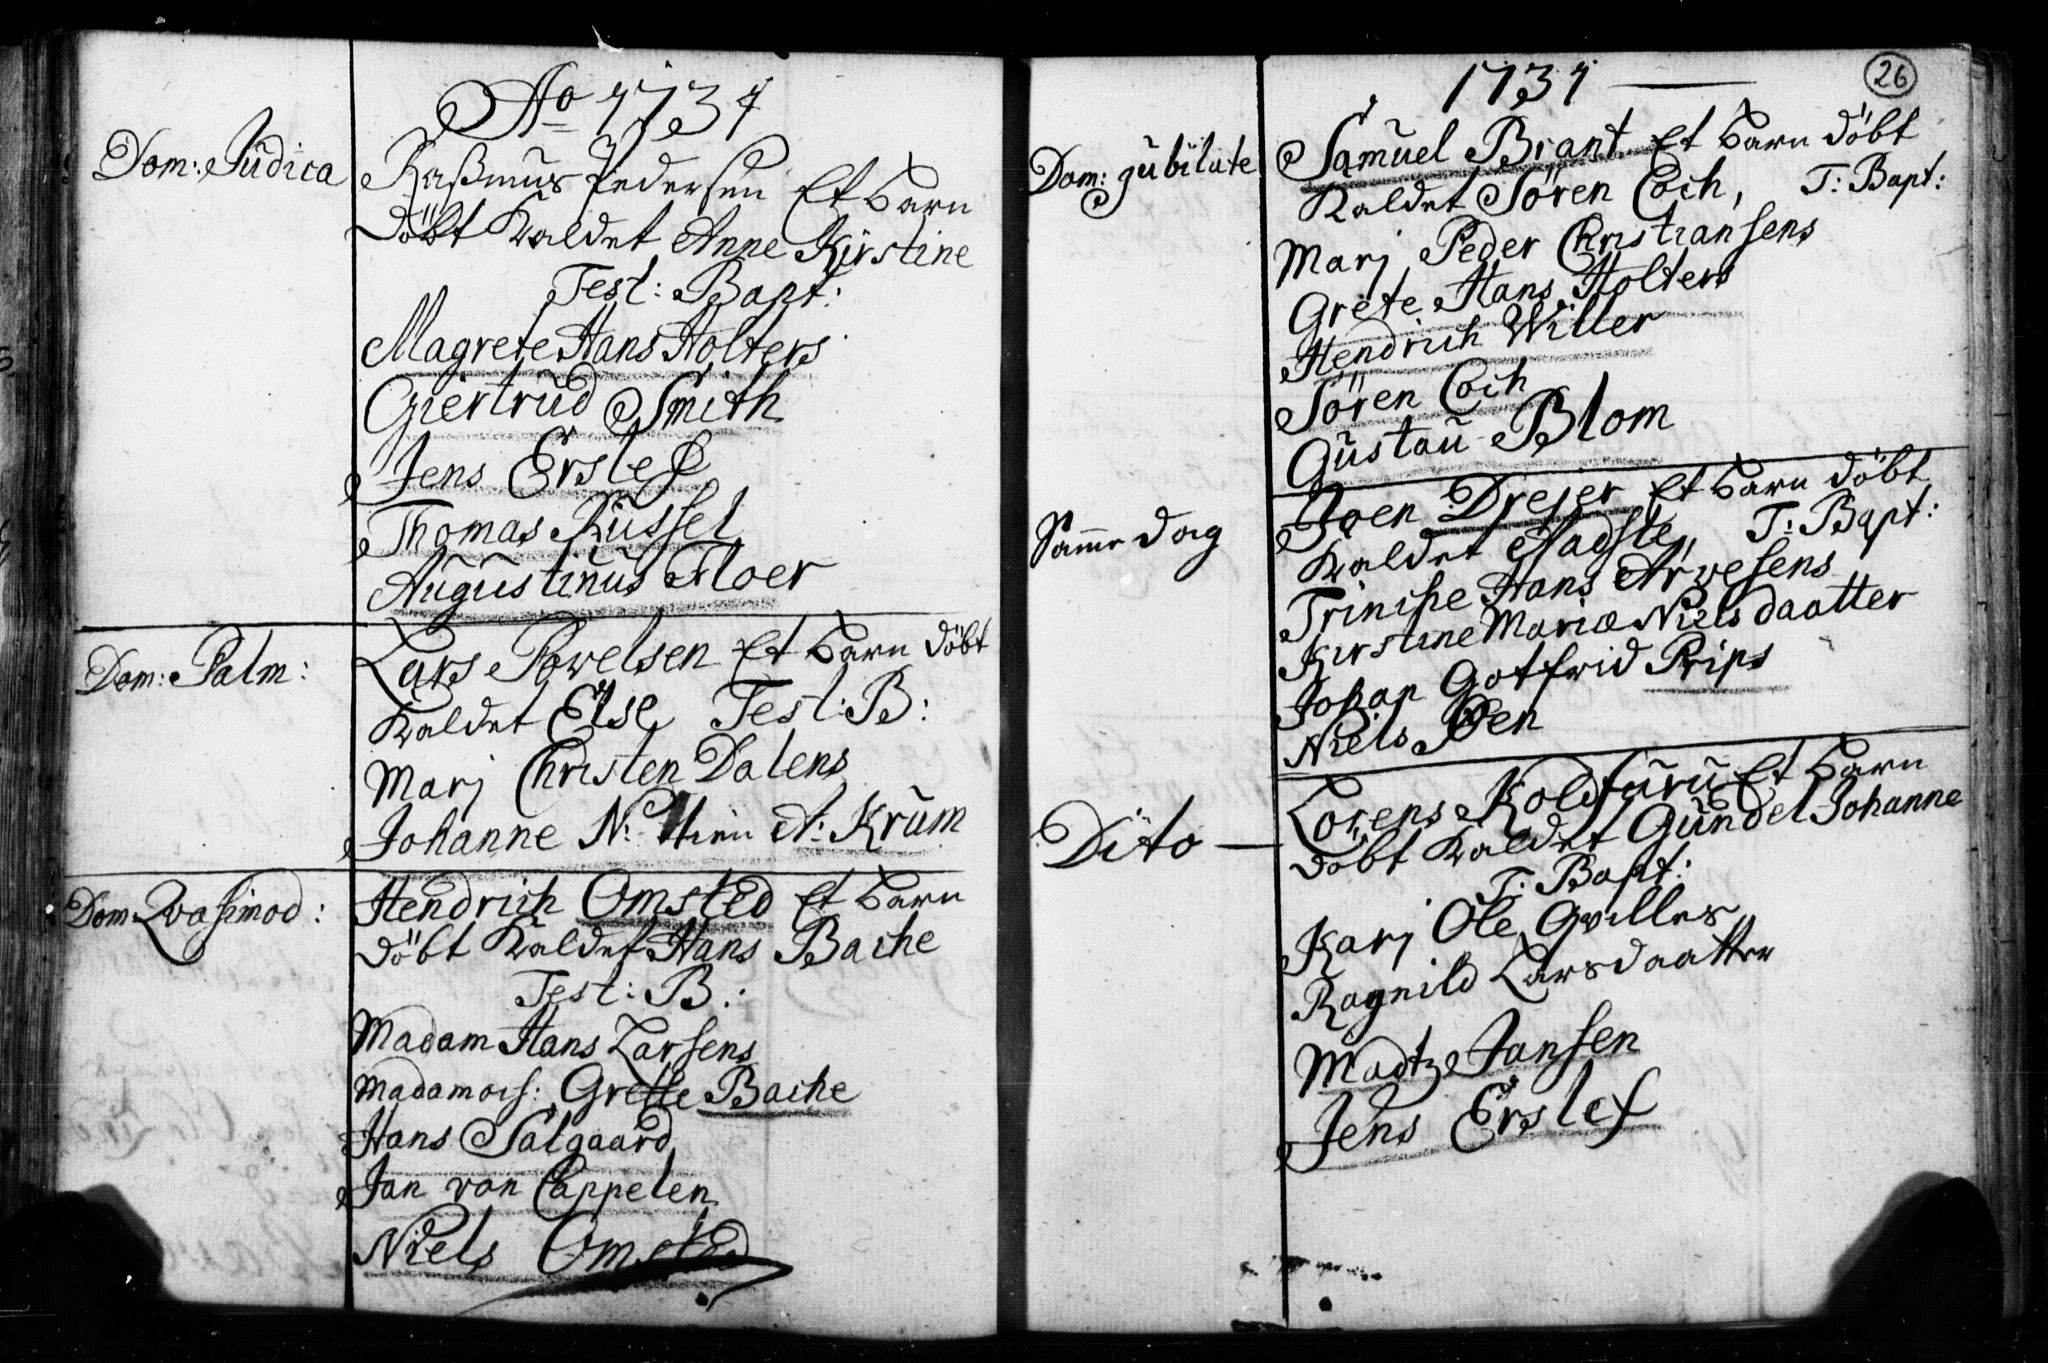 Ao 1737
Dom: Judica
Rasmus Pedersen Et barn
döbt Kaldet Anne Kirstine
Test: Bapt:
Magrete Hans Holters
Giertrud Smith
Jens Erslef
Thomas Russel
Augustinus Floer
Dom: Palm:
Lars Povelsen Et barn döbt
Kaldet Else Test: B:
Marj Christen Dalens
Johanne N: A: Krum
Dom Qvasimod:
Hendrich Omsted Et barn
döbt Kaldet Hans Bache
Test: B:
Madam Hans Larsens
Madamois: Grette Bache
Hans Salgaard
Jan van Cappelen
Niels Omsted
1737
26
Dom: jubilate
Samuel Brant Et barn döbt
Kaldet Sören Coch, T: Bapt:
Marj Peder Christiansens
Grete Hans Holters
Hendrich Willer
Sören Coch
Gustau Blom
Samme dag
Joen Drejer Et barn döbt
Kaldet T: Bapt:
Trinche Hans Arvesens
Kirstine Maria Niels daatter
Johan Gotfrid Prips
Niels Boen
Dito —
Lorens Koldfuru Et barn
döbt Kaldet Gundel Johanne
T: Bapt:
Karj Ole Qvilles
Ragnild Larsdaatter
Madtz Jansen
Jens Erslef